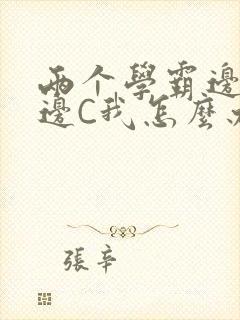 兩个學霸邊
邊C我怎麼
張辛